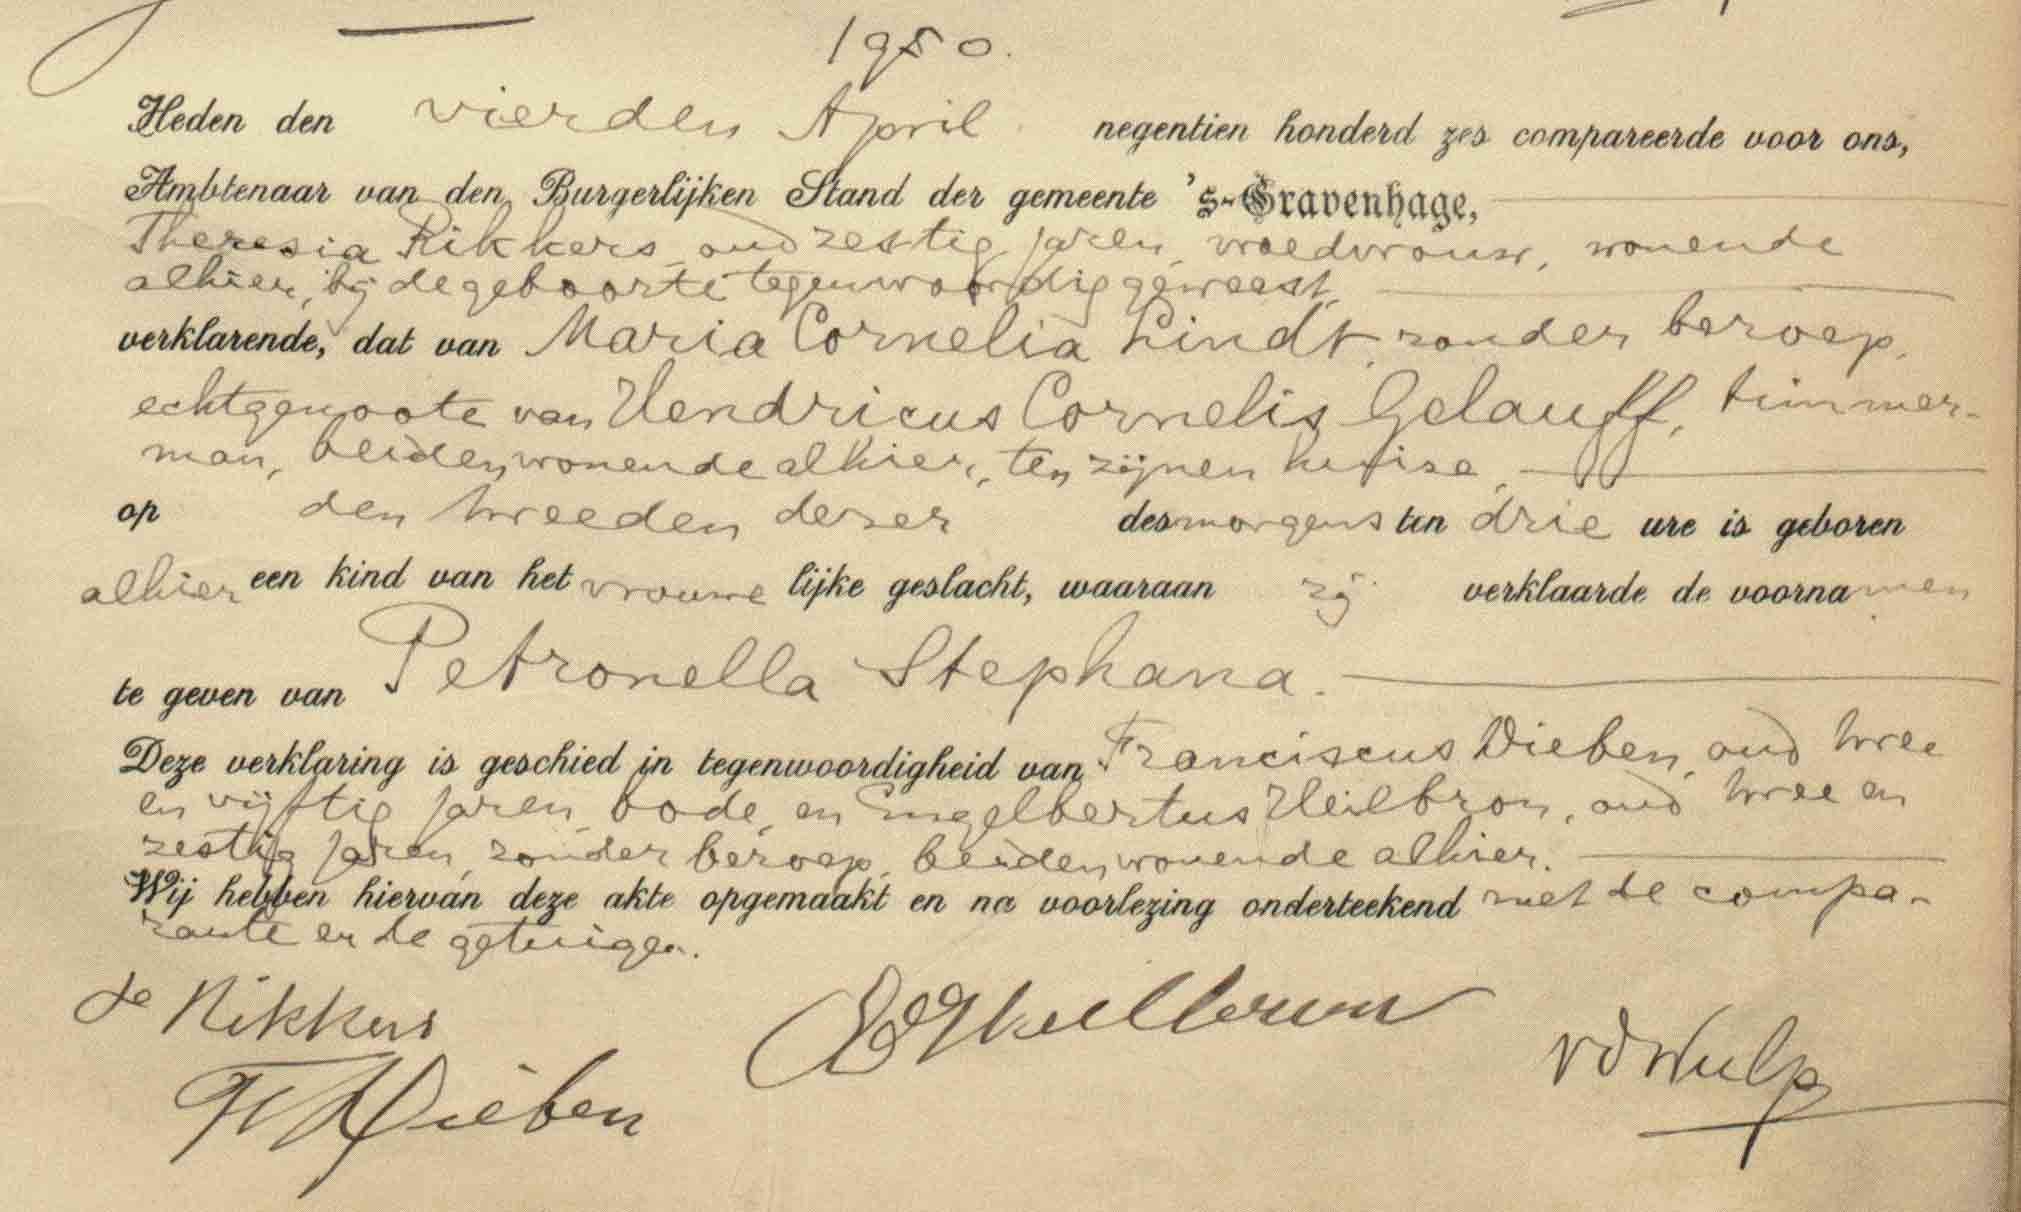 1950.
Heden den vierden April negentien honderd zes compareerde voor ons,
Ambtenaar van den Burgerlijken Stand der gemeente 's-Gravenhage,
Theresia Rikkers, oud zestig jaren, vroedvrouw, wonende
alhier, bij de geboorte tegenwoordig geweest,
verklarende, dat van Maria Cornelia Lindt, zonder beroep,
echtgenoote van Hendricus Cornelis Gelauff, timmer-
man, beiden wonende alhier, ten zijnen huise,
op den tweeden dezer des morgens ten drie ure is geboren
alhier een kind van het vrouwe lijke geslacht, waaraan zij verklaarde de voornamen
te geven van Petronella Stephana.
Deze verklaring is geschied in tegenwoordigheid van Franciscus Dieben, oud twee
en vijftig jaren, bode, en Engelbertus Heilbron, oud twee en
zestig jaren, zonder beroep, beiden wonende alhier.
Wij hebben hiervan deze akte opgemaakt en na voorlezing onderteekend met de compa-
rante en de getuigen.
Rikkers
Heilbron
vdWulp
Dieben